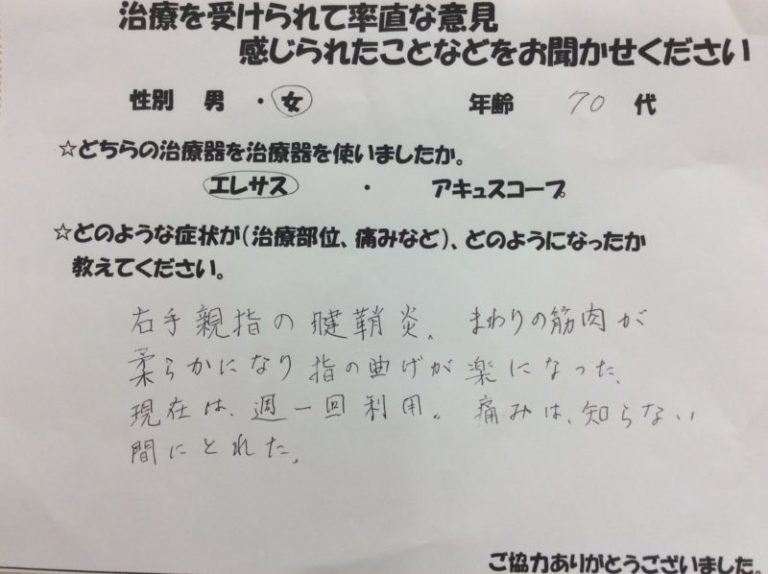 治療を受けられて率直な意見
感じられたことなどをお聞かせください
性別 男 ・ 女 年齢 70 代
☆どちらの治療器を治療器を使いましたか。
エレサス ・ アキュスコープ
☆どのような症状が(治療部位、痛みなど)、どのようになったか
教えてください。
右手親指の腱鞘炎。まわりの筋肉が
柔らかになり指の曲げが楽になった、
現在は、週一回利用。痛みは、知らない
間にとれた。
ご協力ありがとうございました。